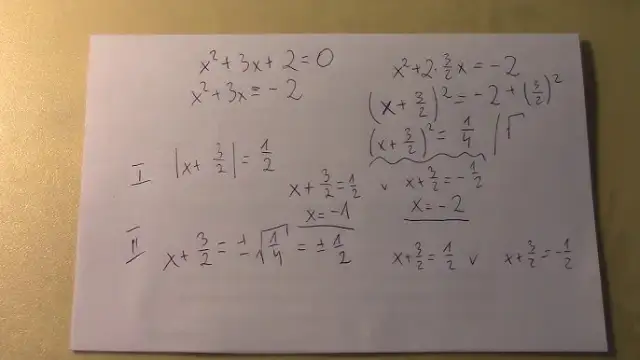 x² + 3x + 2 = 0
x² + 3x = - 2
x² + 2 · 3/2 x = - 2
(x + 3/2)² = - 2 + (3/2)²
(x + 3/2)² = 1/4 | √
I |x + 3/2| = 1/2
x + 3/2 = 1/2 ∨ x + 3/2 = - 1/2
x = - 1 x = - 2
II x + 3/2 = ± √(1/4) = ± 1/2 x + 3/2 = 1/2 ∨ x + 3/2 = - 1/2